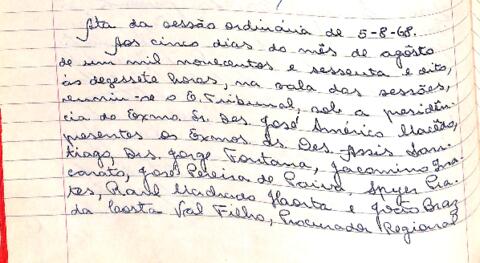 Ata da sessão ordinária de 5-8-68.
Aos cinco dias do mês de agôsto
de um mil novecentos e sessenta e oito,
às dezessete horas, na sala das sessões,
reuniu-se o E. Tribunal, sob a presidên-
cia do Exmo. Sr. Des. José Américo Macêdo,
presentes os Exmos. Srs. Des. Assis San-
tiago, Drs. Jorge Fontana, Jacomino Ina-
carato, José Pereira de Paiva, Spyer Pra-
tes, Raul Machado Horta e João Braz
da Costa Val Filho, Procurador Regional